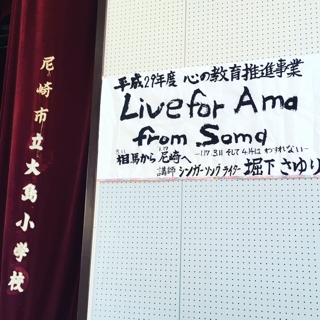 尼崎市立大島小学校
平成29年度 心の教育推進事業
Live for Ama
from Soma
相馬から 尼崎へ -1.17 3.11 そして 4.14は わすれない-
講師 シンガーソングライター 堀下 さゆり